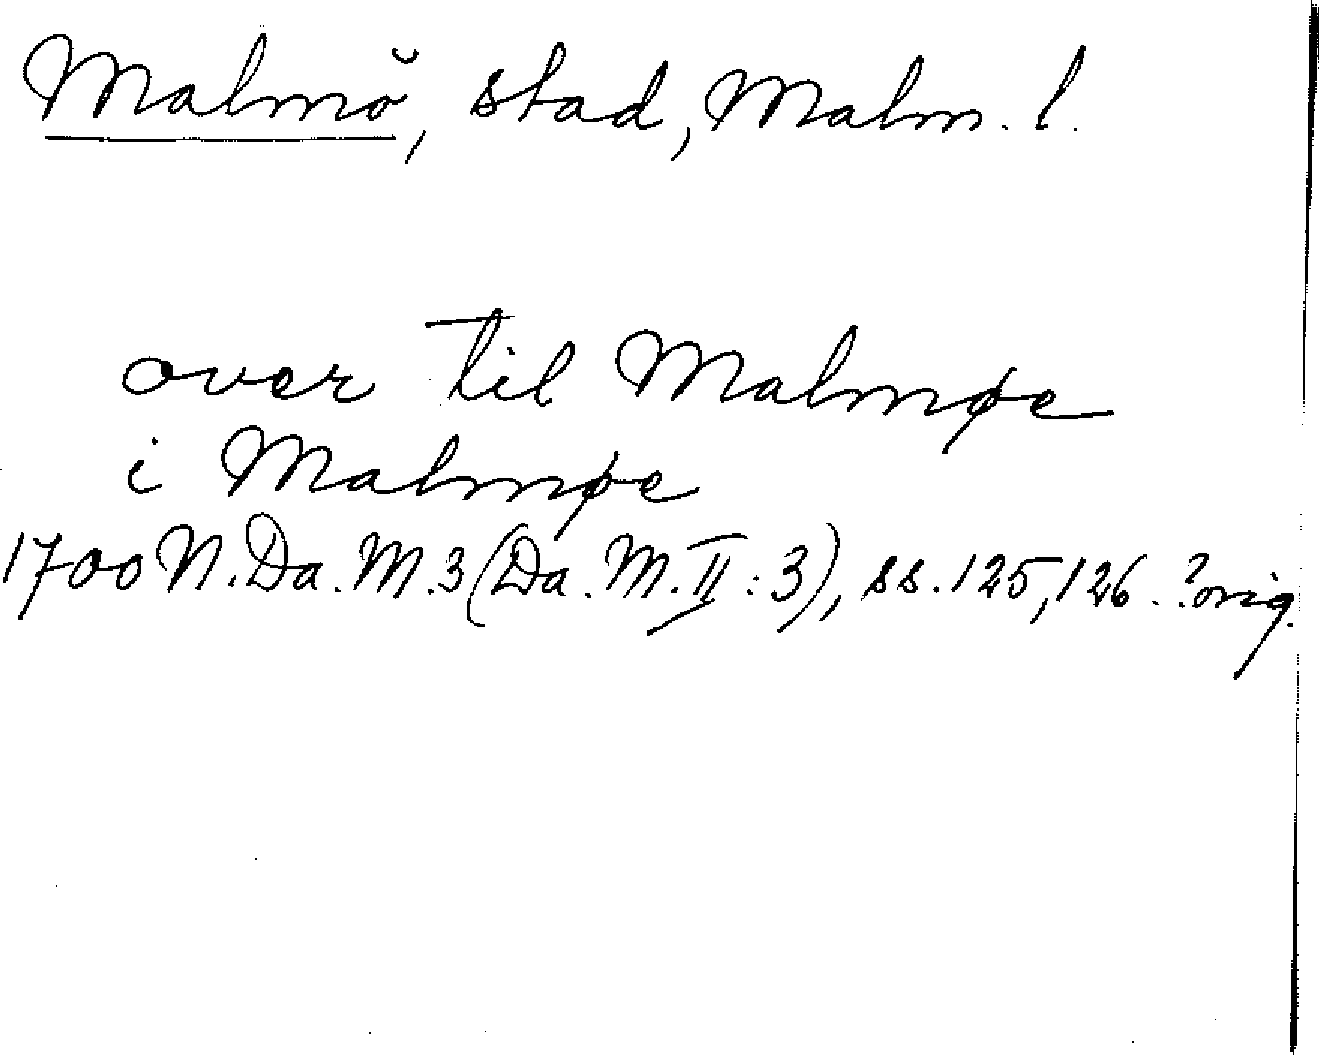 Malmö, stad, Malm. l.
over til Malmøe
i Malmøe
1700 N. Da. M. 3 (Da. M. II: 3), ss. 125, 126. ?orig.